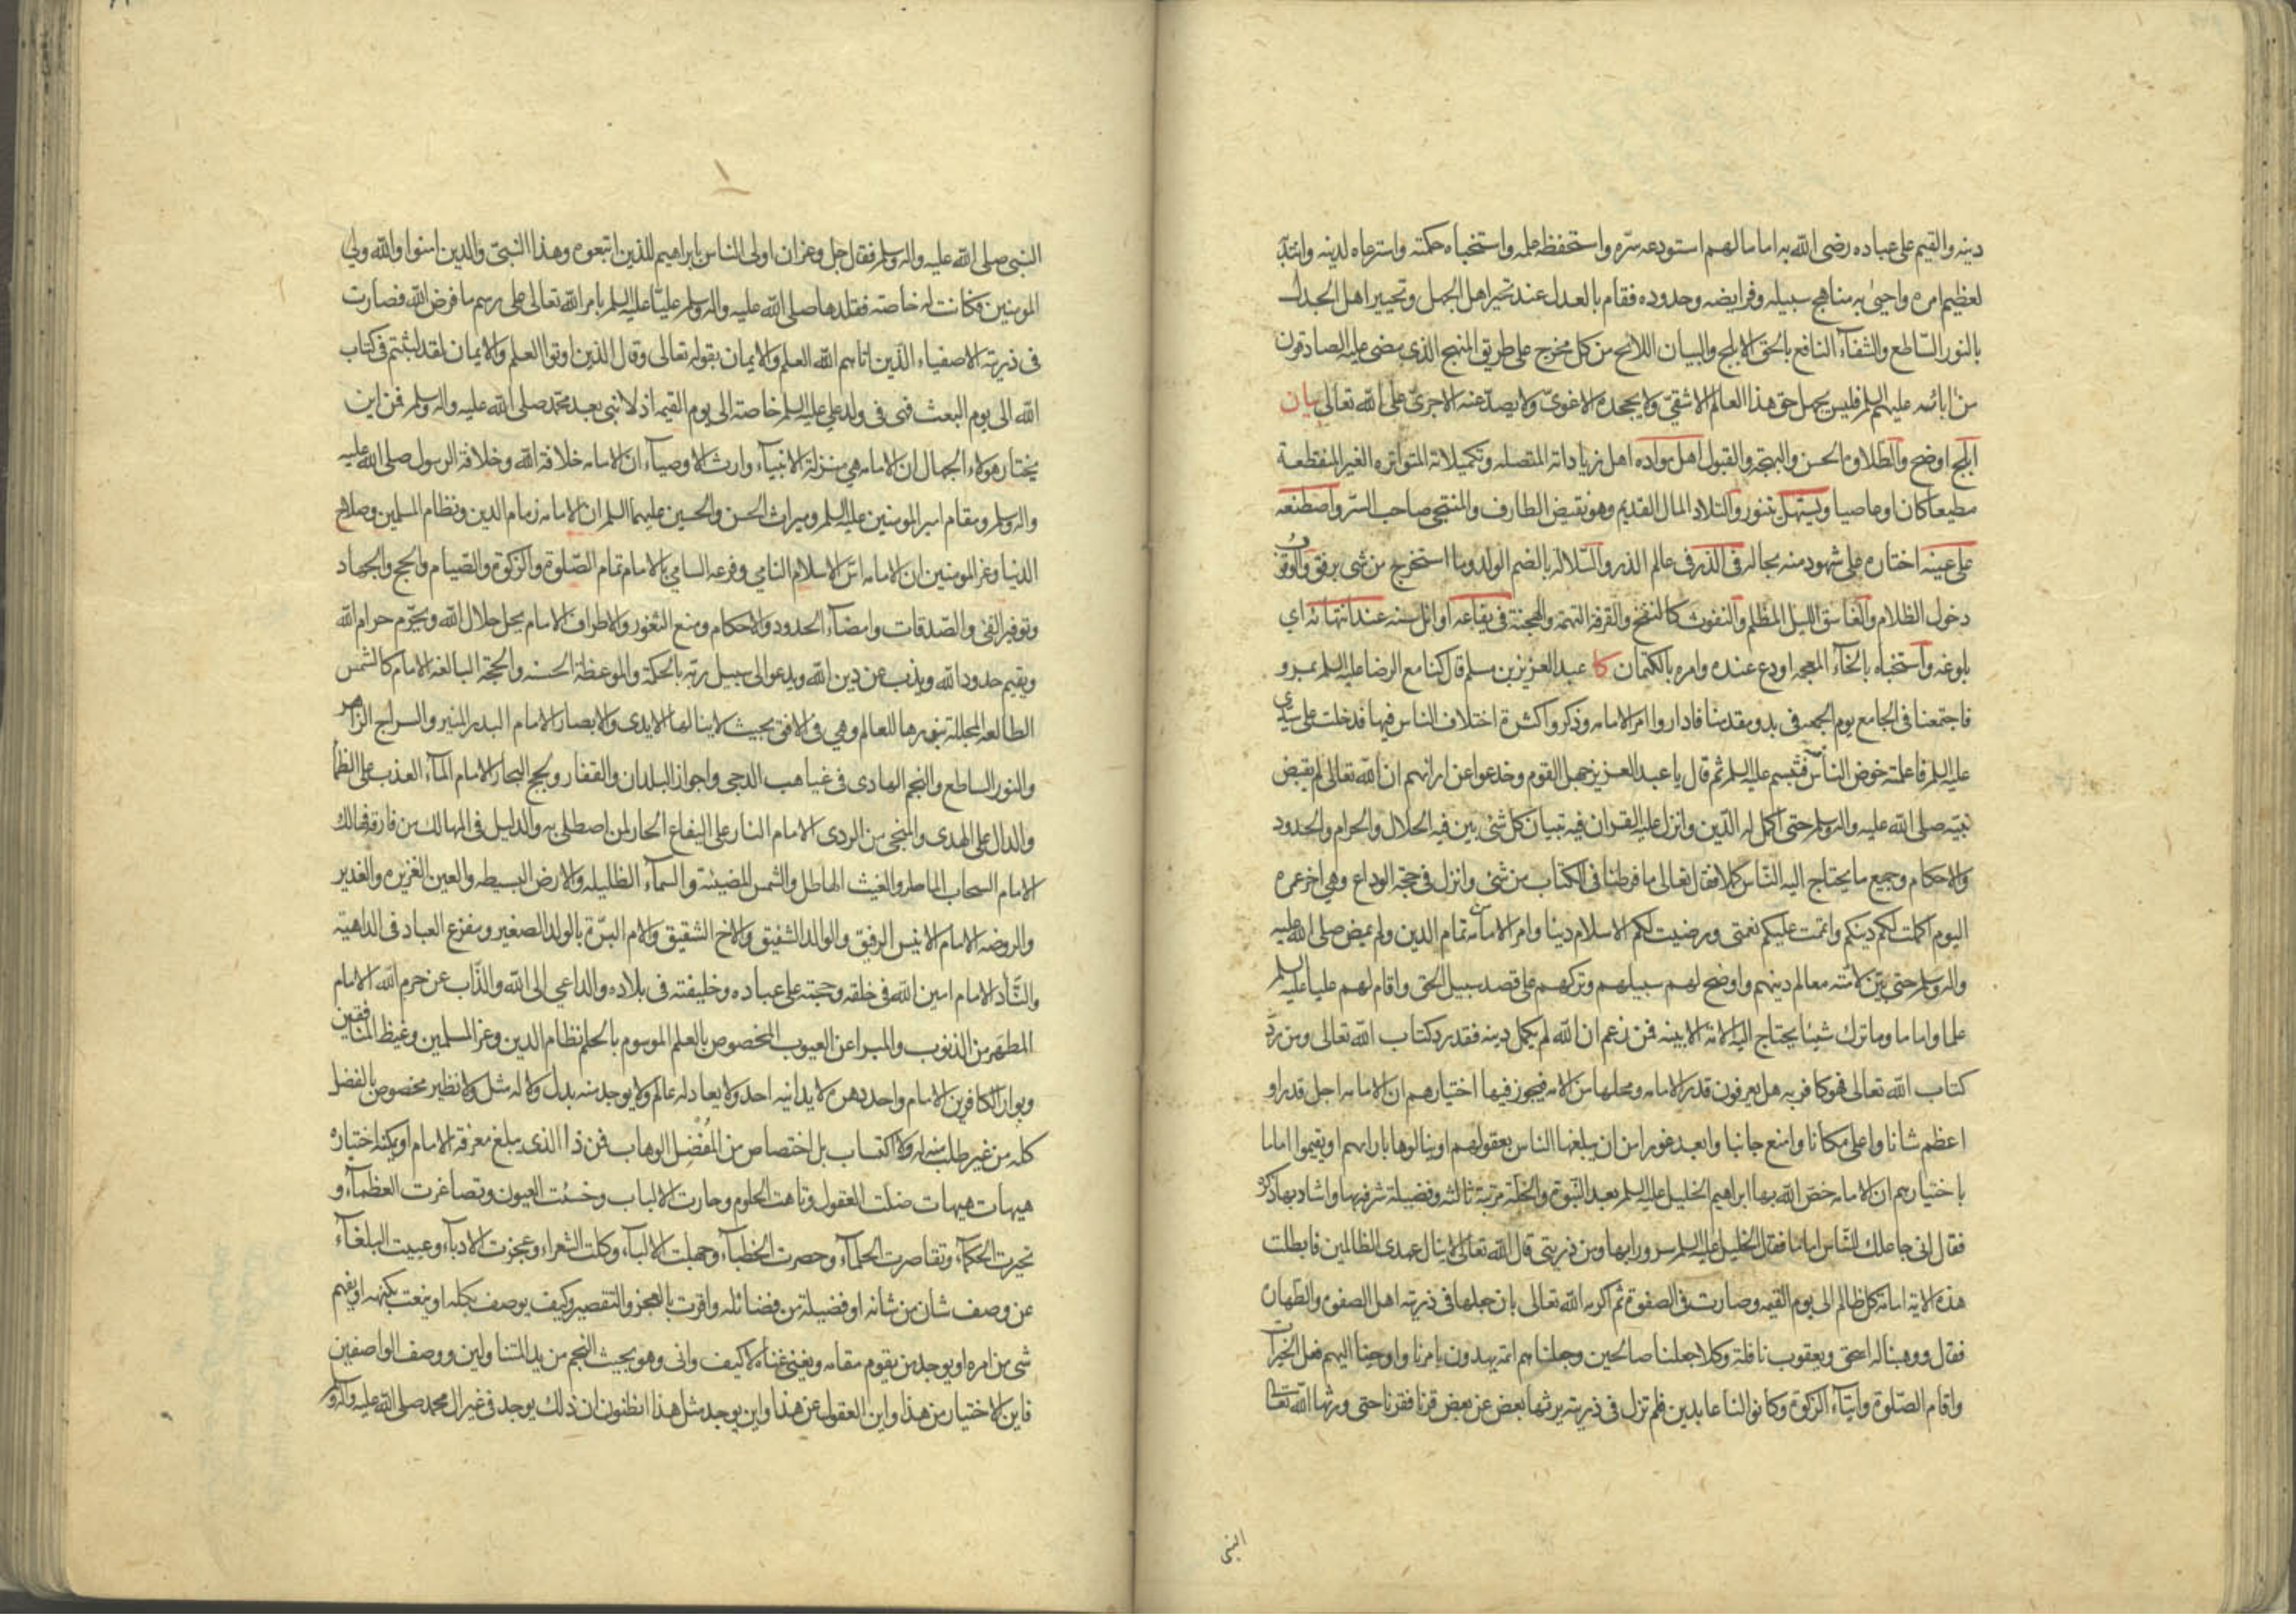 دينه والقيم على عباده رضى الله به اماما لهم استودعه سرّه واستحفظه علمه واستخباه حكمته واسترعاه لدينه وانتدبه
لعظيم امره واحيى به مناهج سبيله وفرايضه وحدوده فقام بالعدل عند تحير اهل الجهل وتحيير اهل الجدل
بالنور السّاطع والشفآء النافع بالحق الابلج والبيان اللائح من كل مخرج على طريق المنهج الذى مضى عليه الصادقون
من ابائه عليهم السلم فليس يجهل حق هذا العالم الا شقىّ ولا يجحده الا غوىّ ولا يصدّ عنه الا جرىّ على الله تعالى بيان
ابلج اوضح والطلاوة الحسن والبهجة والقبول اهل مواده اهل زياداته المتصله وتكميلاته المتواتره الغير المنقطعة
مطيعا كان او عاصيا ويستهل بتنور والتلاد المال القديم وهو نقيض الطارف والمنتجى صاحب السّر واصطنعه
على عينه اختاره على شهود منه بحاله فى الذر فى عالم الذر والسّلاله بالضم الولد وما استخرج من شى برفق والوقوب
دخول الظلام والغاسق الليل المظلم والنفوث كالنفخ والقرفة التهمة والهجنة فى يفاعه اوائل سنه عند انتهائه اى
بلوغه واستخباه بالخآء المعجمه اودع عنده وامره بالكتمان كا عبد العزيز بن مسلم قال كنا مع الرضا عليه السلم بمرو
فاجتمعنا فى الجامع يوم الجمعه فى بدو مقدمنا فاداروا امر الامامه وذكروا كثرة اختلاف الناس فيها فدخلت على سيدى
عليه السلم فاعلمته خوض الناس فتبسم عليه السلم ثم قال يا عبد العزيز جهل القوم وخدعوا عن ارائهم ان الله تعالى لم يقبض
نبيّه صلى الله عليه واله وسلم حتى اكمل له الدّين وانزل عليه القران فيه تبيان كل شى بين فيه الحلال والحرام والحدود
والاحكام وجميع ما يحتاج اليه النّاس كملا فقال تعالى ما فرطنا فى الكتاب من شى وانزل فى حجة الوداع وهى اخر عمره
اليوم اكملت لكم دينكم واتممت عليكم نعمتى ورضيت لكم الاسلام دينا وامر الامامه تمام الدين ولم يمض صلى الله عليه
واله وسلم حتى بيّن لامّته معالم دينهم واوضح لهم سبيلهم وتركهم على قصد سبيل الحق واقام لهم عليا عليه السلم
علما واماما وما ترك شيئا يحتاج اليه الامّة الا بينه فمن زعم ان الله لم يكمل دينه فقد رد كتاب الله تعالى ومن ردّ
كتاب الله تعالى فهو كافر به هل يعرفون قدر الامامه ومحلها من الامه فيجوز فيها اختيارهم ان الامامه اجل قدرا و
اعظم شانا واعلى مكانا وامنع جانبا وابعد غورا من ان يبلغها الناس بعقولهم او ينالوها بارائهم او يقيموا اماما
باختيارهم ان الامامه خصّ الله بها ابراهيم الخليل عليه السلم بعد النّبوة والخلة مرتبة ثالثه وفضيلة شرفه بها واشاد بها ذكره
فقال انى جاعلك للنّاس اماما فقال الخليل عليه السلم سرورا بها ومن ذريتى قال الله تعالى لا ينال عهدى الظالمين فابطلت
هذه الاية امامة كل ظالم الى يوم القيمه وصارت فى الصفوة ثم اكرمه الله تعالى بان جعلها فى ذريته اهل الصفوه والطهاره
فقال ووهبنا له اسحق ويعقوب نافلة وكلا جعلنا صالحين وجعلناهم ائمة يهدون بامرنا واوحينا اليهم فعل الخيرات
واقام الصّلوة وايتآء الزكوة وكانوا لنا عابدين فلم تزل فى ذريته يرثها بعض عن بعض قرنا فقرنا حتى ورثها الله تعالى
النبى
النبى صلى الله عليه واله وسلم فقال جل وعز ان اولى الناس بابراهيم للذين اتبعوه وهذا النبىّ والذين امنوا والله ولى
المومنين فكانت له خاصة فقلدها صلى الله عليه واله وسلم عليّا عليه السلم بامر الله تعالى على رسم ما فرض الله فصارت
فى ذريته الاصفياء الّذين اتاهم الله العلم والايمان بقوله تعالى وقال الذين اوتوا العلم والايمان لقد لبثتم فى كتاب
الله الى يوم البعث فهى فى ولد على عليه السلم خاصة الى يوم القيمه اذ لا نبى بعد محمد صلى الله عليه واله وسلم فمن اين
يختار هولاء الجهال ان الامامه هى منزلة الانبيآء وارث الاوصيآء ان الامامه خلافة الله وخلافة الرسول صلى الله عليه
واله وسلم ومقام امير المومنين عليه السلم وميراث الحسن والحسين عليهما السلم ان الامامه زمام الدين ونظام المسلمين وصلاح
الدّنيا وعز المومنين ان الامامه اسّ الاسلام النامى وفرعه السامى بالامام تمام الصّلوة والزكوة والصّيام والحج والجهاد
وتوفير الفئ والصّدقات وامضآء الحدود والاحكام ومنع الثغور والاطراف الامام يحل حلال الله ويحرّم حرام الله
ويقيم حدود الله ويذب عن دين الله ويدعو الى سبيل ربّه بالحكمة والموعظة الحسنه والحجة البالغه الامام كالشمس
الطالعه المجللة بنورها للعالم وهى فى الافق بحيث لا ينالها الايدى والابصار الامام البدر المنير والسراج الزاهر
والنور الساطع والنجم الهادى فى غياهب الدجى واجواز البلدان والقفار ولجج البحار الامام المآء العذب على الظمآ
والدال على الهدى والمنجى من الردى الامام النار على اليفاع الحار لمن اصطلى به والدليل فى المهالك من فارقه فهالك
الامام السحاب الماطر والغيث الهاطل والشمس المضيئة والسمآء الظليله والارض البسيطه والعين الغزيره والغدير
والروضه الامام الانيس الرفيق والوالد الشفيق والاخ الشقيق والام البرّة بالولد الصغير ومفزع العباد فى الداهية
والنّآد الامام امين الله فى خلقه وحجته على عباده وخليفته فى بلاده والداعى الى الله والذّاب عن حرم الله الامام
المطهّر من الذنوب والمبرا عن العيوب المخصوص بالعلم الموسوم بالحلم نظام الدين وعز المسلمين وغيظ المنافقين
وبوار الكافرين الامام واحد دهره لا يدانيه احد ولا يعادله عالم ولا يوجد منه بدل ولا له مثل ولا نظير مخصوص بالفضل
كله من غير طلب منه له ولا اكتساب بل اختصاص من المُفْضِل الوهاب فمن ذا الذى يبلغ معرفة الامام او يمكنه اختياره
هيهات هيهات ضلت العقول وتاهت الحلوم وحارت الالباب وخسئت العيون وتصاغرت العظمآء و
تحيرت الحكمآء وتقاصرت الحلمآء وحصرت الخطبآء وجهلت الالبآء وكلت الشعراء وعجزت الادبآء وعييت البلغآء
عن وصف شان من شانه او فضيلة من فضائله واقرت بالعجز والتقصير وكيف يوصف بكله او ينعت بكنهه او يفهم
شى من امره او يوجد من يقوم مقامه ويغنى غناه لا كيف وانى وهو بحيث النجم من يد المتناولين ووصف الواصفين
فاين الاختيار من هذا واين العقول عن هذا واين يوجد مثل هذا اتظنون ان ذلك يوجد فى غير ال محمد صلى الله عليه واله وسلم